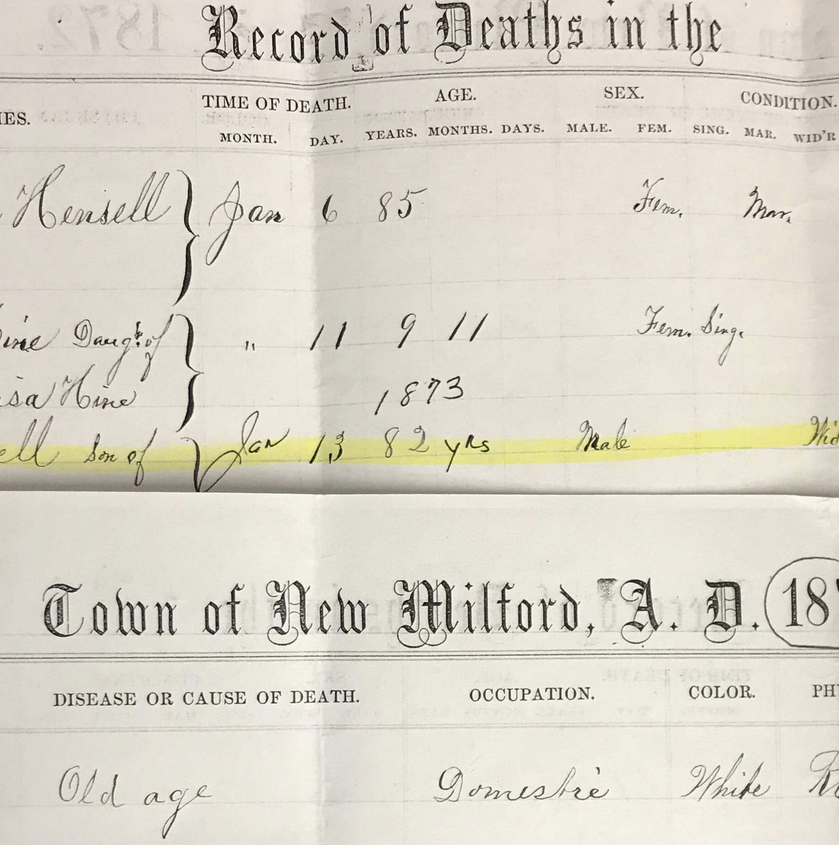 Record of Deaths in the
TIME OF DEATH. AGE. SEX. CONDITION.
MONTH. DAY. YEARS. MONTHS. DAYS. MALE. FEM. SING. MAR. WID'R
Hensell Jan 6 85 Fem. Mar.
Daugt. of " 11 9 11 Fem. Sing.
Hine 1873
ell Son of Jan 13 82 yrs Male Wid
Town of New Milford, A. D. 18
DISEASE OR CAUSE OF DEATH. OCCUPATION. COLOR. PH
Old age Domestic White